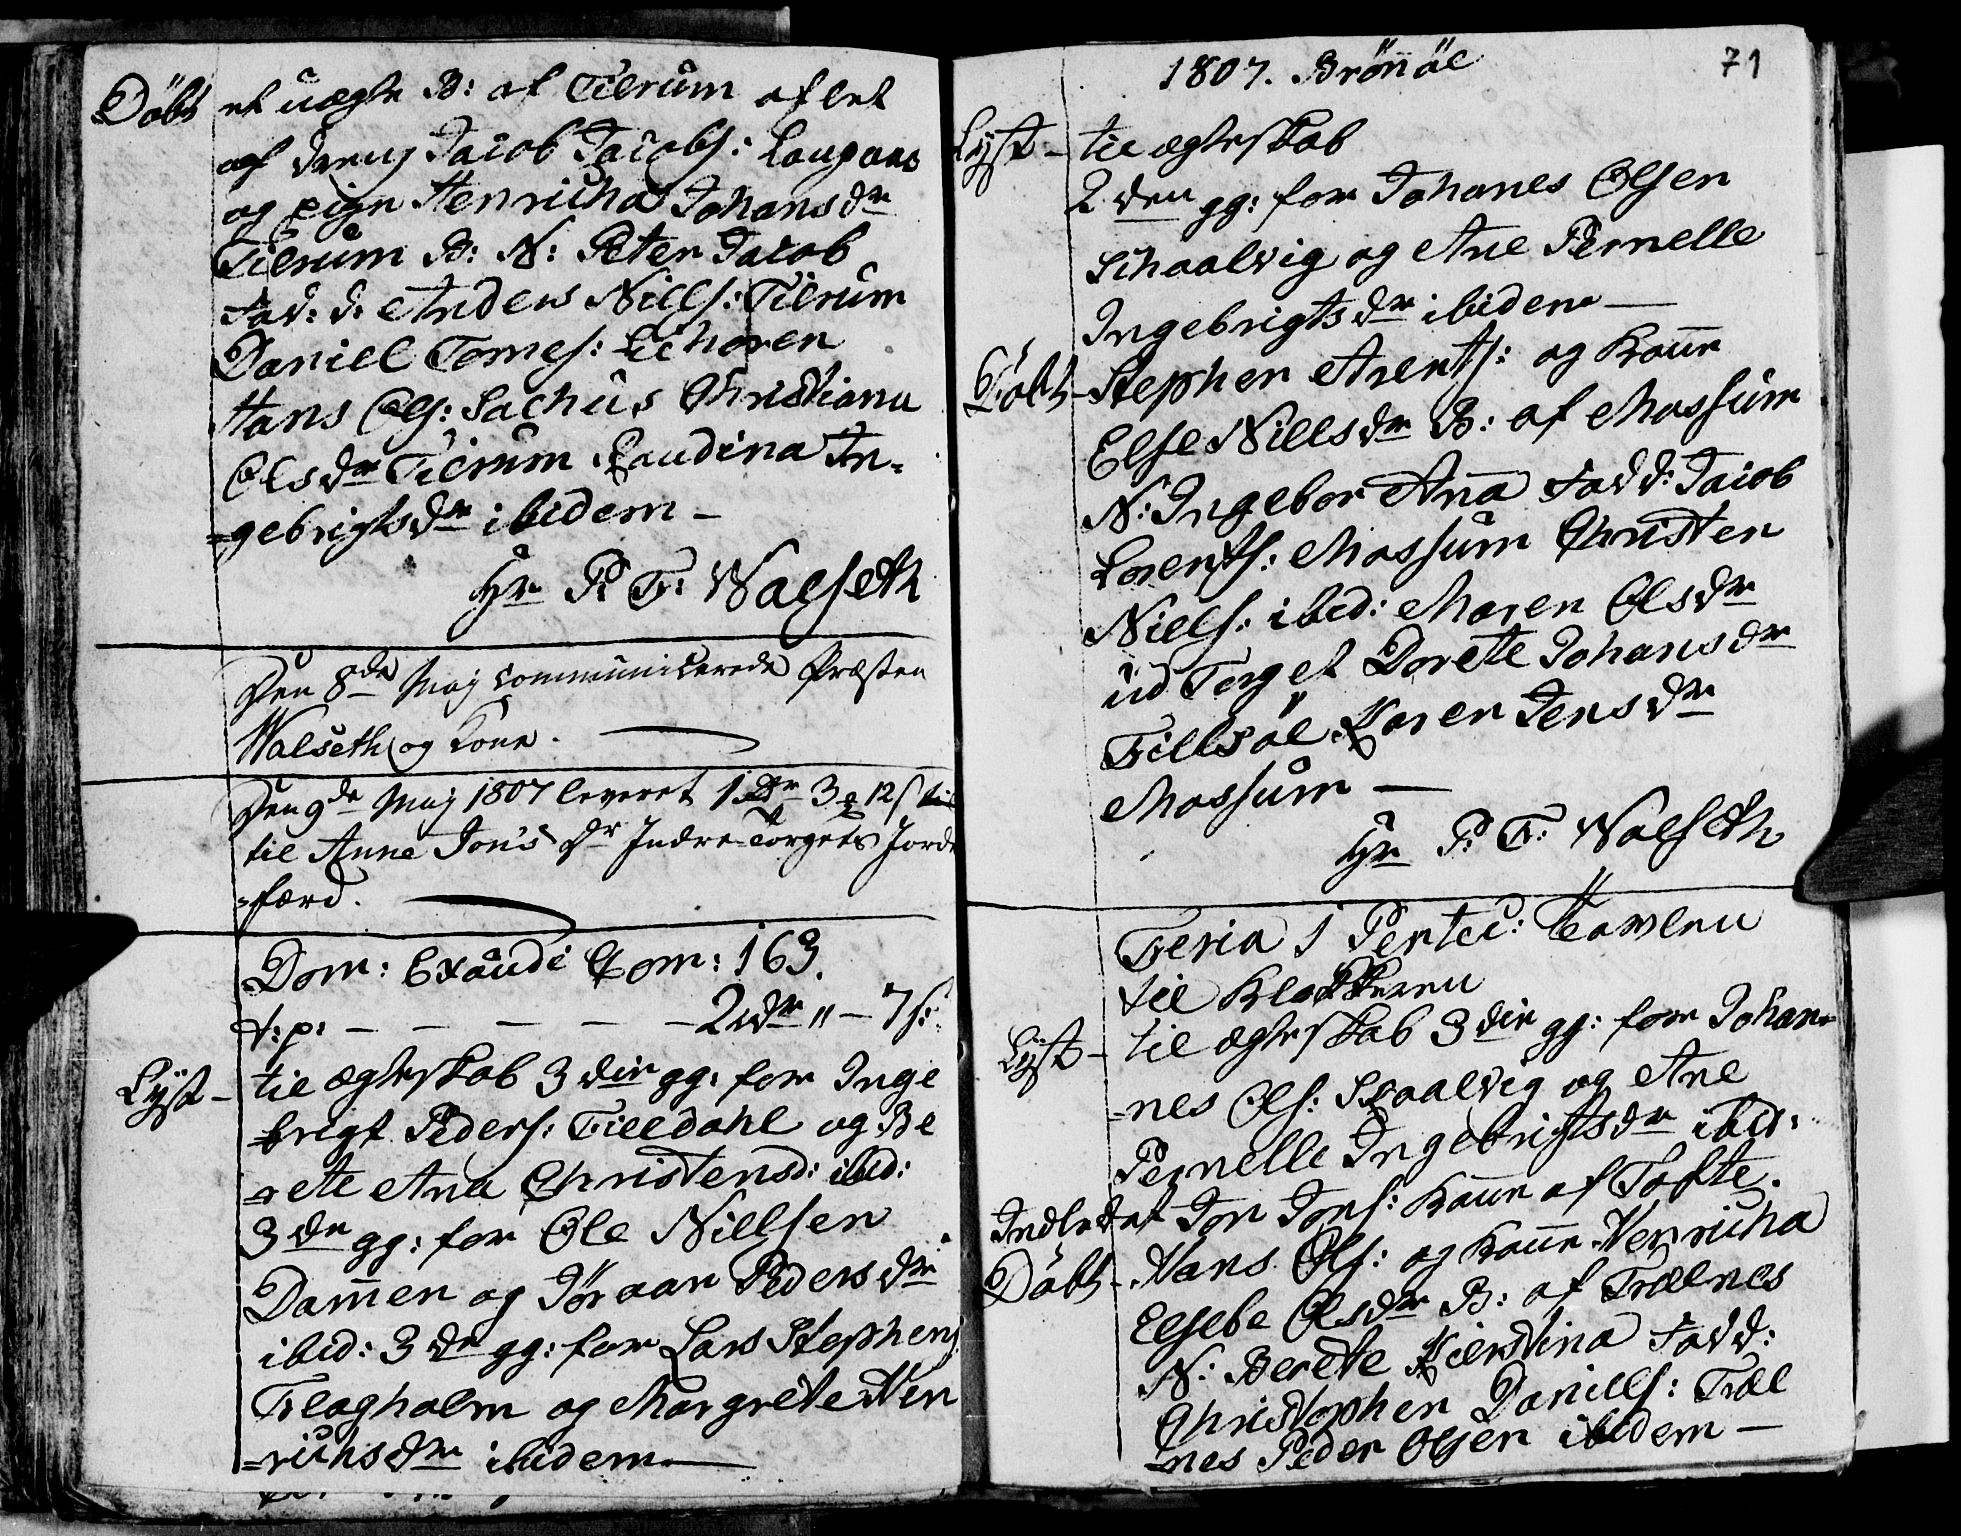 Döbt et uægte B: af Tilrum aflet
af dreng Jacob Jacobs: Laugaas
og pige Henricha Johansdr
Tilrum B: N: Peter Jacob
Fad: d: Anders Niels: Tilrum
Daniel Tomes:
Hans Ols: Sachus Christiana
Olsdr Tilrum Laudina In-
=gebrigtsdr ibidem -
Hr P: T: Walseth
Den 8de Maj communicerede Præsten
Walseth og Kone.
Den 9de Maj 1807 leveret 1 dr 3 12 s til
til Anne Jons dr Indre-Torgets Jorde
=færd.
Dom: Exaudi Com: 163.
t: p: - - - - - 2 dr " - 7 s:
Lyst - til ægteskab 3die gg: for Inge
=brigt Peders: Tilldahl og Be
=rete Ana Christensd: ibid:
3de gg: for Ole Nielsen
Dam̅en og Jöraan Pedersdr
ibid: 3de gg: for Lars Stephens:
Flagholm og Margrete Hen
=richsdr ibidem -
1807. Brön̅öe 71
Lyst - til ægteskab
2den gg: for Johanes Olsen
Schaalvig og Ane Pernelle
Ingebrigtsdr ibidem -
Döbt - Stephen Arents: og Kon̅e
Else Nillsdr B: af Mossum
N: Ingebor An̅a Fadd: Jacob
Lorents: Mossum Christen
Niels: ibid: Maren Olsdr
ud Torget Dorete Johansdr
Tillsöe Karen Jensdr
Mossum -
Hr P: T: Walseth
Feria 1 Pentec: Tavlen
til Klokkeren
Lyst - til ægteskab 3die gg: for Johan=
=nes Ols: Skaalvig og Ane
Pernelle Ingebrigtsdr ibid:
Indledet Jon Jons: Kon̅e af Tofte.
Döbt - Hans Ols: og Kon̅e Henricha
Elsebe Olsdr B: af Trælnes
N: Berete Kierstina Fadd:
Christopher Daniels: Træl
=nes Peder Olsen ibidem -